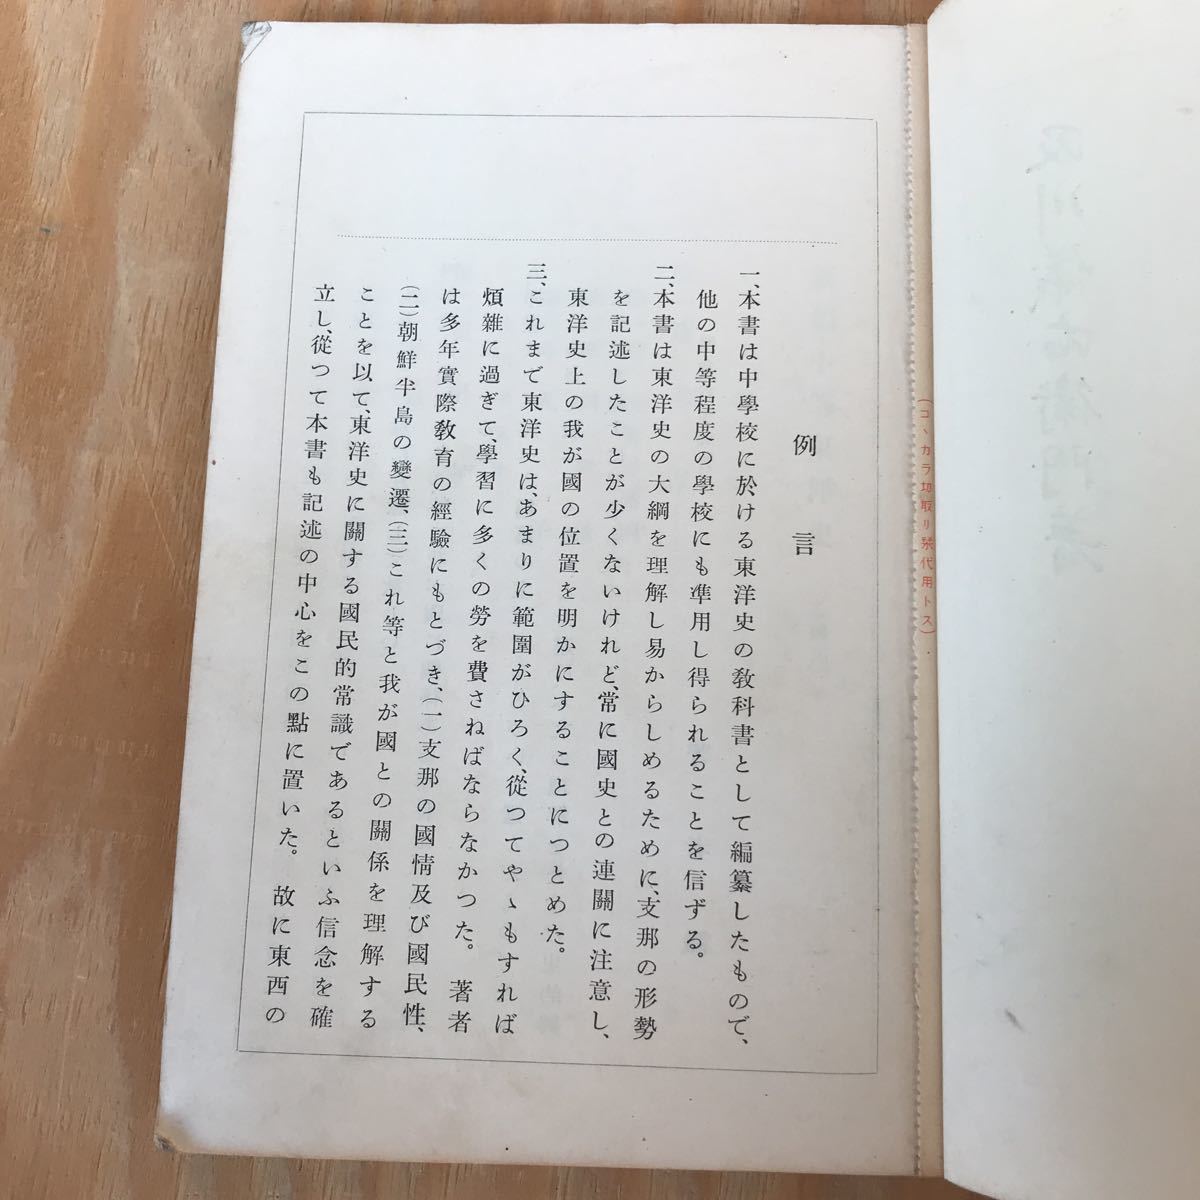 (コヽカラ切取リ栞代用トス)
例言
一、本書は中學校に於ける東洋史の敎科書として編纂したもので、
他の中等程度の學校にも準用し得られることを信ずる。
二、本書は東洋史の大綱を理解し易からしめるために、支那の形勢
を記述したことが少くないけれど、常に國史との連關に注意し、
東洋史上の我が國の位置を明かにすることにつとめた。
三、これまで東洋史は、あまりに範圍がひろく、從つてやゝもすれば
煩雜に過ぎて、學習に多くの勞を費さねばならなかつた。著者
は多年實際敎育の經驗にもとづき、(一)支那の國情及び國民性、
(二)朝鮮半島の變遷、(三)これ等と我が國との關係を理解する
ことを以て、東洋史に關する國民的常識であるといふ信念を確
立し、從つて本書も記述の中心をこの點に置いた。故に東西の